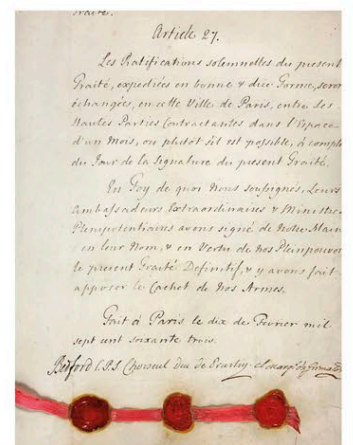 Traité.
Article 27.
Les Ratifications solemnelles du present
Traité, expediées en bonne & düe Forme, seront
échangées, en cette Ville de Paris, entre les
Hautes Parties Contractantes dans l'Espace
d'un Mois, ou plutôt s'il est possible, à compter
du Jour de la Signature du present Traité.
En Foy de quoi Nous soussignés, Leurs
Ambassadeurs Extraordinaires & Ministres
Plenipotentiaires avons signé de Notre Main
en leur Nom, & en Vertu de Nos Pleinpouvoirs
le present Traité Definitif, & y avons fait
apposer le Cachet de Nos Armes.
Fait à Paris le dix de Fevrier mil
sept cent soixante trois.
Bedford C.P.S. Choiseul Duc de Praslin. el Marq.s de Grimaldi